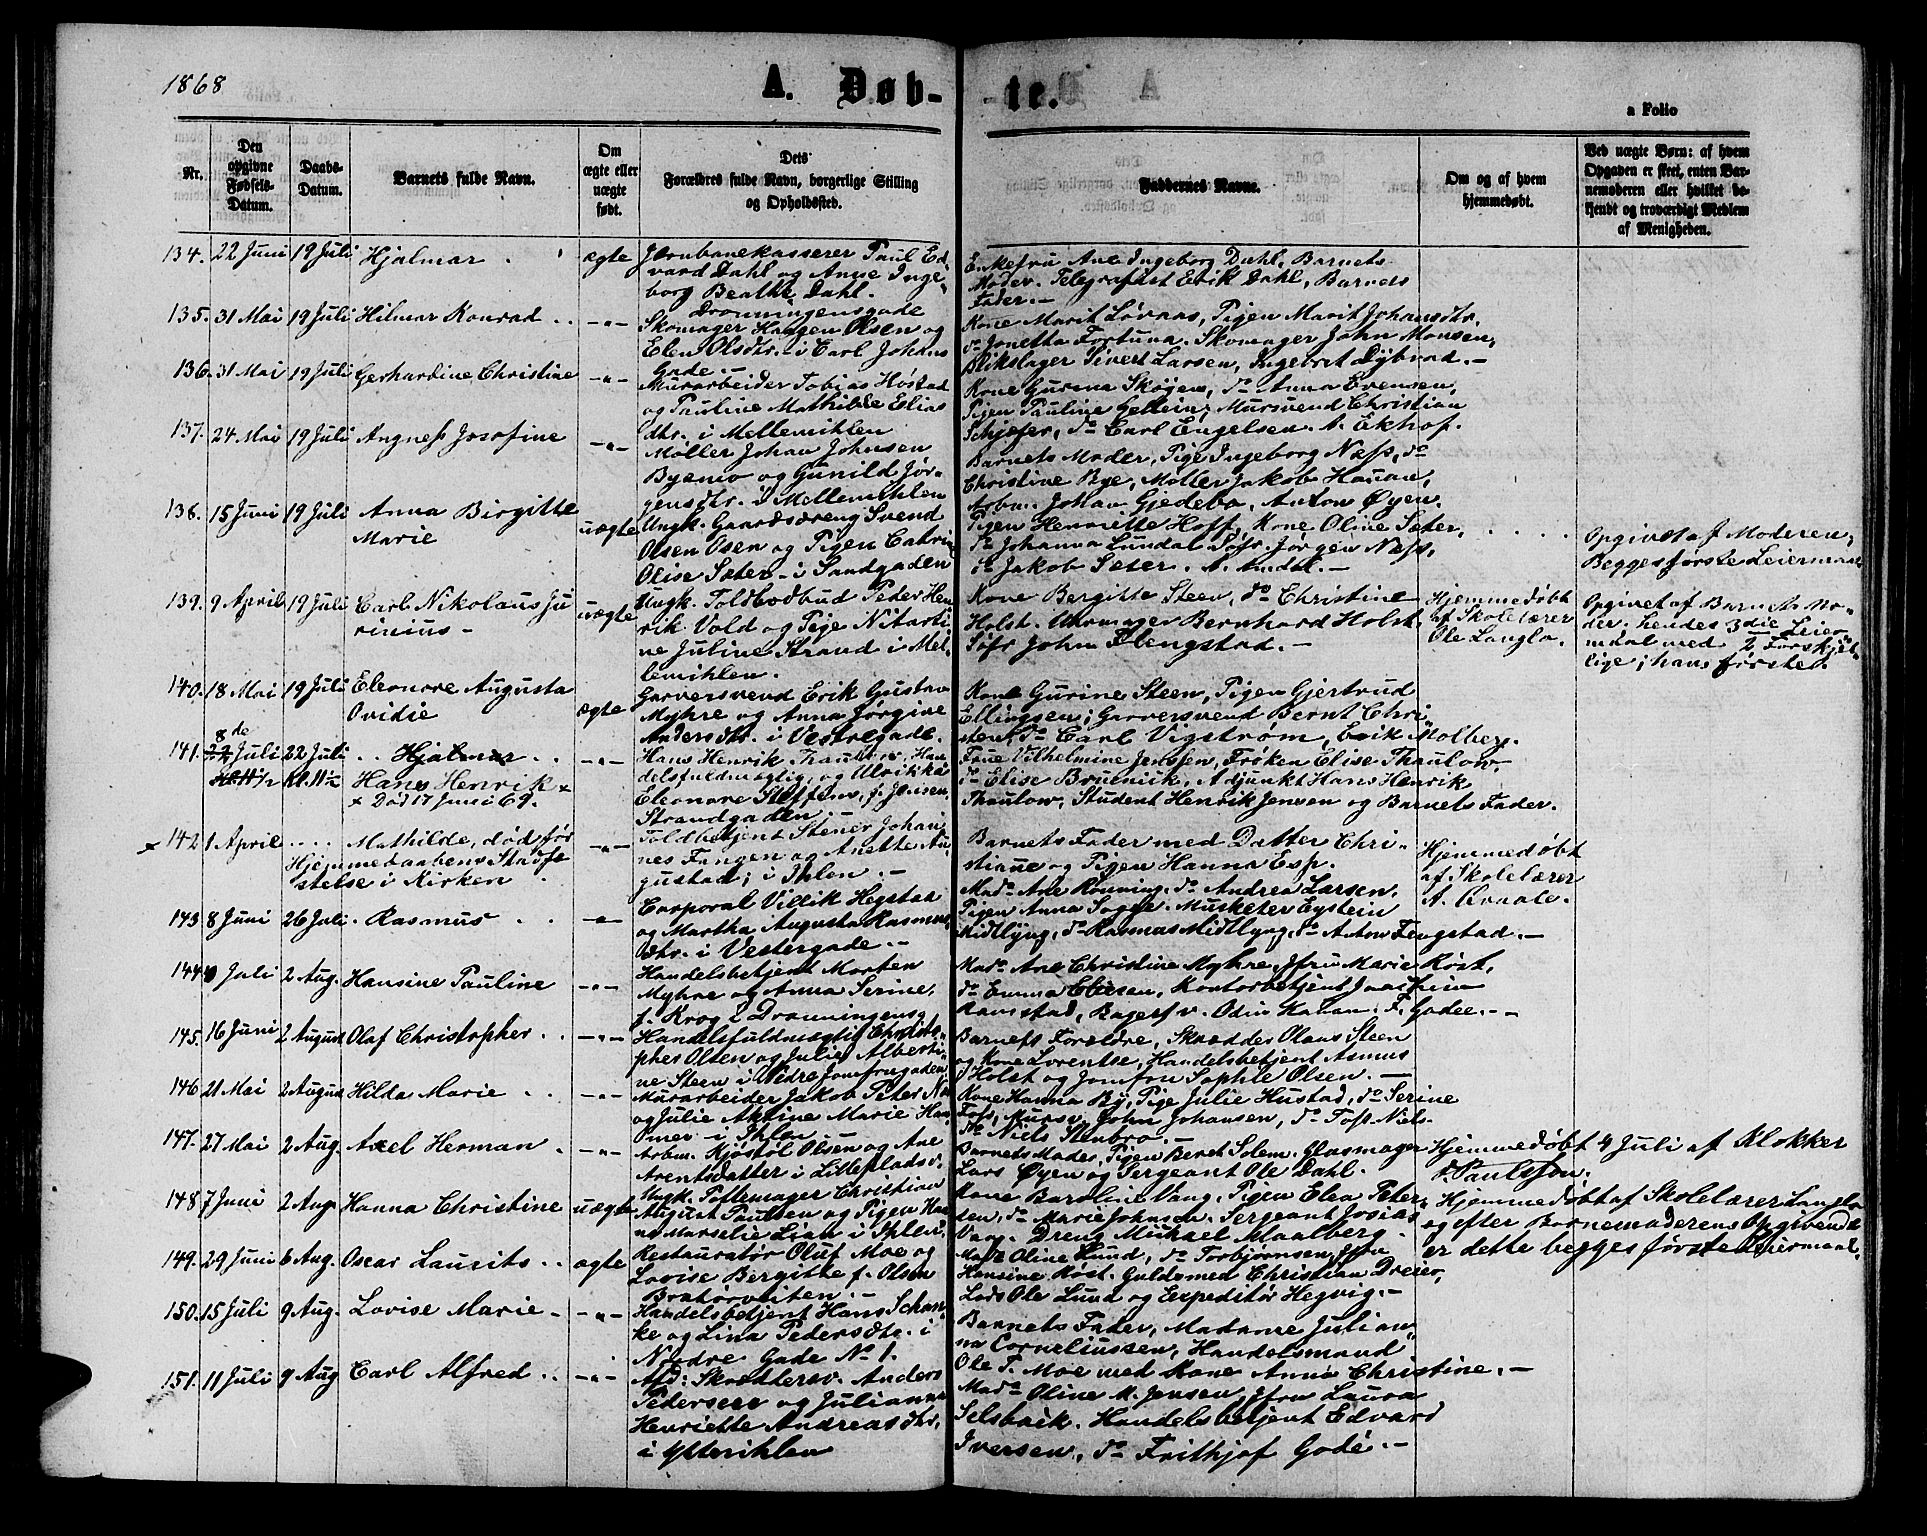 1868
A. Døb-
te.
a Folio
Nr.
Den opgivne Fødsels-Datum.
Daabs-Datum.
Barnets fulde Navn.
Om ægte eller uægte født.
Dets Forældres fulde Navn, borgerlige Stilling og Opholdssted.
Faddernes Navne.
Om og af hvem hjemmedøbt.
Ved uægte Børn: af hvem Opgaven er skeet, enten Barnemoderen eller hvilket bekjendt og troværdigt Medlem af Menigheden.
134. 22 Juni 19 Juli Hjalmar ægte
Jernbanekasserer Paul Ed-
vard Dahl og Anne Inge-
borg Beathe Dahl.
Dronningensgade
Enkefru Ane Ingeborg Dahl, Barnets
Moder. Telegrafist Erik Dahl, Barnets
Fader. —
135. 31 Mai 19 Juli Hilmar Konrad . . —"—
Skomager Haagen Olsen og
Elen Olsdtr. i Carl Johans
Gade. —
Kone Marit Løvaas, Pigen Marit Johansdtr.
do Jonetta Fortuna. Skomager John Monsen,
Blikslager Sivert Larsen, Ingebret Dybvad. —
136. 31 Mai 19 Juli Gerhardine Christine —"—
Murarbeider Tobias Høstad
og Pauline Mathilde Elias
dtr. i Mellemihlen
Kone Gurina Skøgen, do Anna Evensen,
Pigen Pauline Gellein, Mursvend Christian
Schjefer, do Carl Engelsen. A. Ekhof.
137. 24 Mai 19 Juli Angness Josefine —"—
Møller Johan Johnsen
Byemo og Gunild Jør-
gensdtr. i Mellemihlen
Barnets Moder, Pige Ingeborg Næss, do
Christine Bye, Møller Jakob Hauan,
Arbm. Johan Gjedebo, Anton Øyen.
138. 15 Juni 19 Juli Anna Birgitte
Marie
uægte
Ungk. Gaardsdreng Svend
Olsen Osen og Pigen Cathri
Olise Sæter i Sandgaden
Pigen Henriette Hoff, Kone Oline Sæter,
do Johanna Lundal Søfr. Jørgen Næss,
do Jakob Sæter. A. Aundal. —
Opgivet af Moderen,
Begges første Leiermaal
139. 9 April 19 Juli Carl Nikolaus Ju
rinius —
uægte
Ungk. Toldbodbud Peder Hen
rik Vold og Pige Nikarti
ne Juline Strand i Mel-
lemihlen.
Kone Bergitte Steen, do Christine
Holst. Uhrmager Bernhard Holst,
Søfr John Flengstad. —
Hjemmedøbt
af Skolelærer
Ole Langlo.
Opgivet af Barnets Mo-
der, hendes 3die Leier-
maal med 2 Forskjel-
lige; hans første.
140. 18 Mai 19 Juli Eleonore Augusta
Ovidie
ægte
Garversvend Erik Gustav
Myhre og Anna Jørgine
Andersdtr. i Vestregade.
Kone Gurine Steen, Pigen Gjertrud
Ellingsen; Garversvend Bernt Chri-
sten, do Carl Vigstrøm, Erik Molberg.
141. 8de Juli 22 Juli . . Hjalmar . . —"—
Kl. 11½ Hans Henrik x
x Død 17 Juni 69.
Hans Henrik Thaulow, Han
delsfuldmægtig, og Ulrikke
Eleonore Steffens f. Jensen,
Strandgaden. —
Frue Vilhelmine Jenssen, Frøken Elise Thaulow,
do Elise Bruenick, Adjunkt Hans Henrik
Thaulow, Student Henrik Jensen og Barnets Fader.
x 142 1 April . . . . Mathilde, død før
Hjemmedaabens Stadfæ
stelse i Kirken . —"—
Toldbetjent Stener Johan
nes Fangen og Anette Au
gustad; i Ihlen. —
Barnets Fader med Datter Chri-
stiane og Pigen Hanna Esp.
Hjemmedøbt
af Skolelærer
A. Kvaale.
143 8 Juni 26 Juli. Rasmus . . —"—
Corporal Villik Hegstad
og Martha Augusta Rasmus
dtr. i Vestergade. —
Mado Ane Rønning, do Andrea Larsen,
Pigen Anna Sogge. Musketer Eystein
Midtlyng, do Rasmus Midtlyng, do Anton Fengstad. —
144 Juli 2 Aug. Hansine Pauline —"—
Handelsbetjent Morten
Myhre og Anna Serine,
f. Krog i Dronningensg
Mado Ane Christine Myhre, Jfru Marie Røst,
do Emma Eliesen, Kontorbetjent Joachim
Ramstad, Bagersv. Odin Hauan. F. Godee. —
145. 16 Juni 2 August Olaf Christopher . . —"—
Handelsfuldmægtig Christo-
pher Olsen og Julie Alberti-
ne Steen i Nedre Jomfrugaden
Barnets Forældre, Skrædder Olaus Steen
og Kone Lorentse, Handelsbetjent Asmus
Holst og Jomfru Sophie Olsen. —
146 21 Mai 2 August Hilda Marie . . —"—
Murarbeider Jakob Peter
og Julie Axtine Marie Han
Omer i Ihlen. —
Kone Hanna By, Pige Julie Hustad, do Serine
Foss, Mursv. John Johansen, do Tosp. Niels
do Niels Stenbro. —
147. 27 Mai 2 Aug. Axel Herman . —"—
Arbm. Kjøstol Olsen og Ane
Arentsdatter i Lilleplads.
Barnets Moder, Pigen Beret Solem. Glasmager
Lars Øyen og Sergeant Ole Dahl.
Hjemmedøbt 4 Juli af Klokker
Paulsson.
148 7 Juni 2 Aug. Hanna Christine uægte
Ungk. Pottemager Christian
August Paulsen og Pigen Han
na Marselie Lian i Ihlen,
Kone Baroline Vang, Pigen Elen Peter-
sen, do Marie Johnsen. Sergeant Josias
Vang. Dreng Mikael Maalberg.
Hjemmedøbt af Skolelærer Langlo
og efter Barnemoderens Opgivende
er dette begges første Leiermaal.
149. 29 Juni 6 Aug. Oscar Laurits . . ægte
Restauratør Oluf Moe og
Lovise Bergitte f. Olsen
Bratorveiten. —
Mado Oline Lund, do Torbjørnsen, Jfru
Hansine Røst. Guldsmed Christian Dreier,
Lods Ole Lund og Expeditør Hegvig. —
150. 15 Juli 9 Aug. Lovise Marie . —"—
Handelsbetjent Hans Schan-
ke og Lina Pedersdtr. i
Nordre Gade No 1.
Barnets Fader, Madame Julian-
na Corneliussen, Handelsmand
Ole T. Moe med Kone Anna Christine. —
151. 11 Juli 9 Aug Carl Alfred . . —"—
Afd: Skrædersv. Anders
Pedersen og Julianne
Henriette Andreasdtr.
i Ytterihlen
Mado Oline M. Jensen, Jfru Laura
Selsbaik. Handelsbetjent Edvard
Iversen, do Frithjof Godé. —